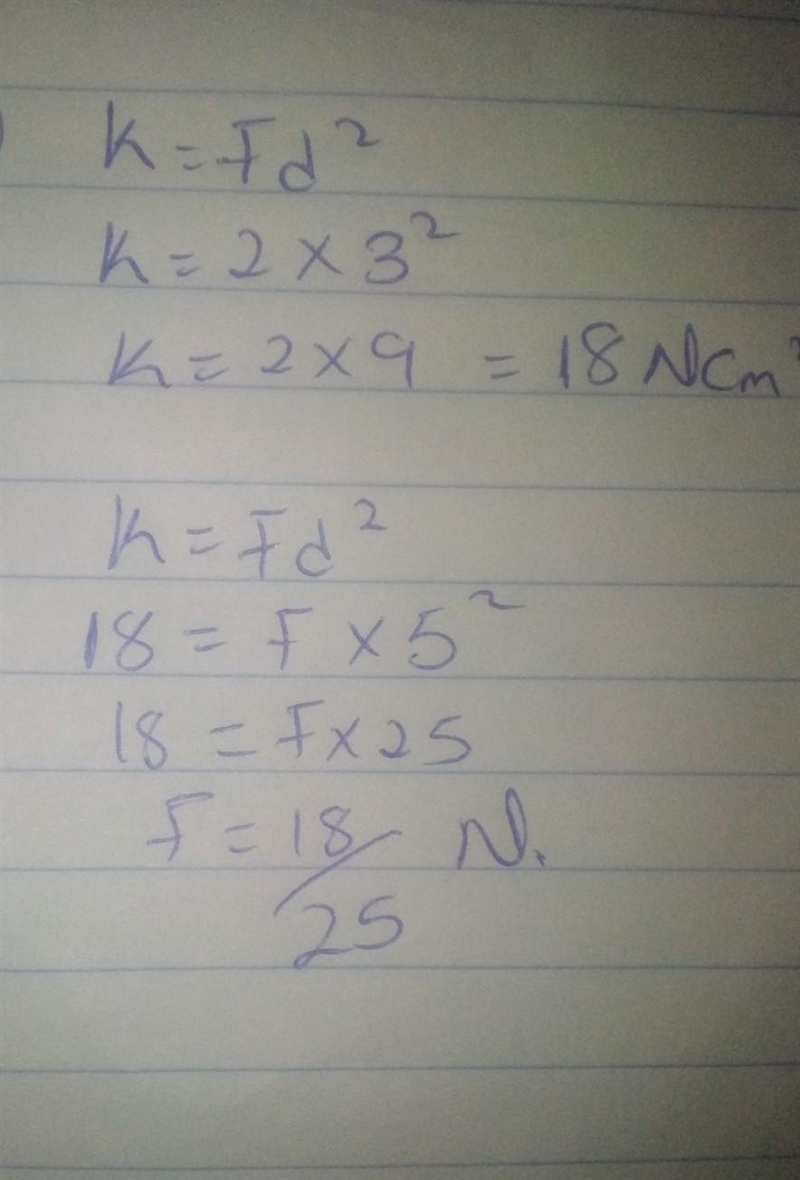 K = Fd²
K = 2 × 3²
K = 2 × 9 = 18 Ncm²
K = Fd²
18 = F × 5²
18 = F × 25
F = 18/25 N.